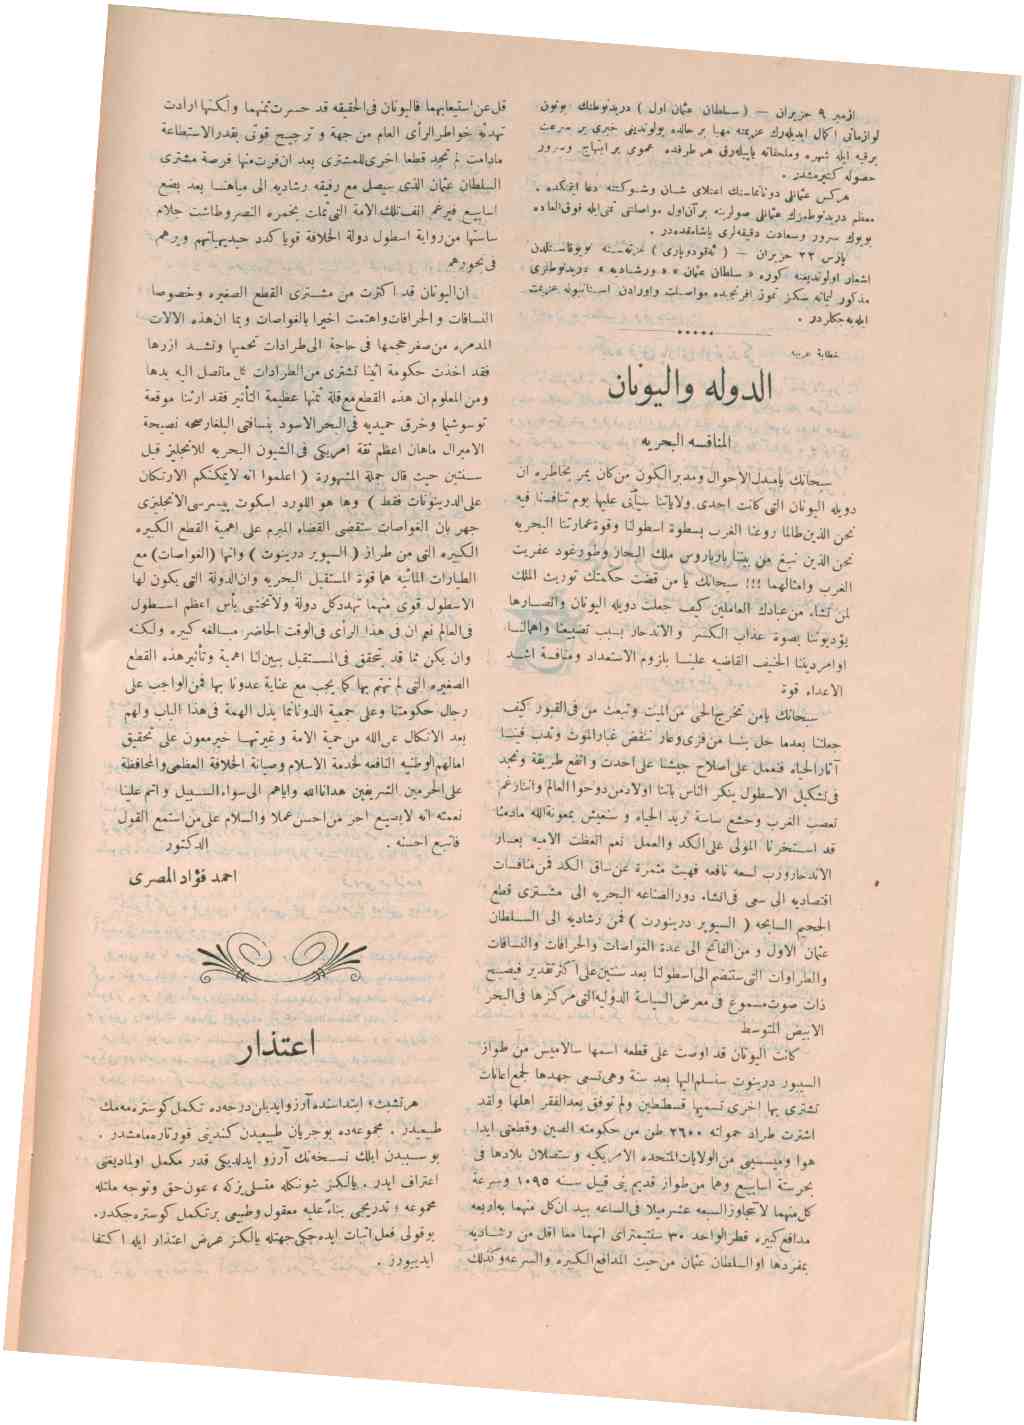 ازمیر ۹ حزیران — ( سلطان عثمان اول ) دریدنوطنك بوتون
لوازماتی اكمال ایدیله‌رك عزیمته مهیا بر حالده بولوندیغی خبری بر سرعت
برقیه ایله شهره وملحقاته یاییله‌رق هر طرفده عمومی بر ابتهاج وسرور
حصوله كتیرمشدر .
هركس عثمانلی دونانماسنك اعتلای شان وشوكتنه دعا ایتمكده .
معظم دریدنوطمزك عثمانلی صولرینه برآن اول مواصلتی تمنی‌ایله فوق‌العاده
بویوك سرور وسعادت دقیقه‌لری یاشامقده‌در .
پارس ۲۲ حزیران — ( ) غزته‌سنه نویوقاستلدن
اشعار اولوندیغنه كوره « سلطان عثمان » « ورشادیه » دریدنوطلری
مذكور لیمانه سكز تموز افرنجیده مواصلت واورادن استانبوله عزیمت
ایده‌جكلردر .
خطابهٔ عربیه
الدوله والیونان
المنافسه البحریه
سبحانك یامبدل‌الاحوال ومدبرالكون من‌كان یمر بخاطره ان
دویله الیونان التی كانت احدی ولایاتنا سیأتی علیها یوم تنافسنا فیه
نحن الذین‌طالما روعنا الغرب بسطوة اسطولنا وقوة عمارتنا البحریه
نحن الذین نبغ من بیننا بارباروس ملك البحار وطورغود عفریت
الغرب وامثالهما !!! سبحانك یا من قضت حكمتك توریث الملك
لمن تشاء من‌عبادك العاملین كیف جعلت دویله الیونان وانصارها
یؤدبوننا بصوة عذاب الكسر والاندحار بسبب تضییعنا واهمالنا
اوامردیننا الحنیف القاضیه علینا بلزوم الاستعداد ومنافسة اشد
الاعداء قوة
سبحانك یامن تخرج‌الحی من‌المیت وتبعث من فی‌القبور كیف
جعلتنا بعدما حل بنا من‌خزی‌وعار ننفض غبارالموت وتدب فینا
آثارالحیاه فنعمل علی‌اصلاح جیشنا علی‌احدث وانفع طریقة ونجد
فی‌تشكیل الاسطول ینكر الناس باننا اولادمن‌دوخوا العالم واننارغم
تعصب الغرب وجشع ساسة نرید الحیاه و سنعیش بمعونةالله مادمنا
قد استخرنا المولی علی‌الكد والعمل نعم اتعظت الامه بعار
الاندحارورب لسعه نافعه فهبت مشمرة عن‌ساق الكد فمن‌منافسات
اقتصادیه الی سعی فی‌انشاء دورالصناعه البحریه الی مشتری قطع
الجحیم السابحه ( السیوبر درینورت ) فمن رشادیه الی السلطان
عثمان الاول و من‌الفاتح الی عدة الغواصات والحرافات والنسافات
والطرادات التی‌ستنضم الی‌اسطولنا بعد سنتین‌علی اكثرتقدیر فیصبح
ذات صوت‌مسموع فی معرض‌السیاسة الدولیه‌التی‌مركزها فی‌البحر
الابیض المتوسط
كانت الیونان قد اوصت علی قطعه اسمها سالامیس من طراز
السیوبر درینوت ستسلم‌الیها بعد سنة وهی‌تسعی جهدها لجمع‌اعانات
تشتری بها اخری تسمیها قسطنطین ولم توفق بعدالفقر اهلها ولقد
اشترت طراد حمولته ۲۶۰۰ طن من حكومته الصین وقطعتی ایدا
هوا ومیسیسبی من‌الولایات‌المتحده الامریكیه وستصلان بلادها فی
بحرستة اسابیع وهما من‌طراز قدیم بنی قبیل سنه ۱۰۹۵ وسرعة
كل‌منهما لاتتجاوزالسبعه عشرمیلا فی‌الساعه بید ان‌كل منهما به‌اربعه
مدافع‌كبیره قطرالواحد ۳۰ سنتیمترای انهما معا اقل من رشادیه
بمفردها اوالسلطان عثمان من‌حیث المدافع‌الكبیره والسرعه‌وكذلك
قل‌عن‌استیعابهما فالیونان فی‌الحقیقه قد خسرت‌ثمنهما ولكنها ارادت
تهدئة خواطرالرأی العام من جهة و ترجیح قوتی بقدرالاستطاعة
مادامت لم تجد قطعا اخری‌للمشتری بعد ان‌فرت‌منها فرصة مشتری
السلطان عثمان الذی سیصل مع رفیقه رشادیه الی میاهنا بعد بضع
اسابیع فیرغم انف‌تلك‌الامة التی‌ثملت بخمره النصروطاشت احلام
ساستها من‌روایة اسطول دولة الخلافة قویا كدد حبیبهباتهم ویرهم
فی‌نحورهم
ان‌الیونان قد اكثرت من مشتری القطع الصغیره وخصوصا
النسافات و الحرافات‌واهتمت اخیرا بالغواصات وبما ان‌هذه الالات
المدمره من‌صغر حجمها فی حاجة الی‌طرادات تحمیها وتشد ازرها
فقد اخذت حكومة اثینا تشتری من‌الطرادات كل ماتصل الیه یدها
ومن‌المعلوم‌ان هذه القطع‌مع‌قلة ثمنها عظیمة التأثیر فقد ارتنا موقعة
توسوشیما وخرق حمیدیه فی‌البحرالاسود بنسافتی‌البلغارصحه نصیحة
الامیرال ماهان اعظم ثقة امریكی فی‌الشیون البحریه للانجلیز قبل
سنتین حیث قال جملة المشهورة ( اعلموا انه لایمكنكم الارتكان
علی‌الدرینوتات فقط ) وها هو اللورد اسكوت پیسرسی‌الانجلیزی
جهربان الغواصات ستقضی القضاء المبرم علی اهمیة القطع الكبیره
الكبیره التی من طراز ( السیوبر درینوت ) وانها (الغواصات) مع
الطیارات المائیه هما قوة المستقبل البحریه وان‌الدولة التی یكون لها
الاسطول قوی منهما تهددكل دولة ولاتخشی بأس اعظم اسطول
فی‌العالم نعم ان فی هذا الرأی فی‌الوقت الحاضر مبالغه كبیره ولكنه
وان یكن مما قد یتحقق فی‌المستقبل یبین‌لنا اهمیة وتأثیرهذه القطع
الصغیره التی لم نهتم بها كما یجب مع عنایة عدونا بها فمن‌الواجب علی
رجال حكومتنا وعلی جمعیة الدونانما بذل الهمة فی‌هذا الباب ولهم
بعد الاتكال عن‌الله من‌حمیة الامة و غیرتها خیرمعون علی تحقیق
امالهم‌الوطنیه النافعه لخدمة الاسلام وصیانة الخلافة العظمی‌والمحافظة
علی‌الحرمین الشریفین هداناالله وایاهم الی‌سواءالسبیل واتم‌علینا
نعمته انه لایضیع اجر من‌احسن‌عملا والسلام علی‌من‌استمع القول
فاتبع احسنه . الدكتور
احمد فؤاد المصری
اعتذار
هرتشبثه ابتداسنده آرزوایدیلن درجه‌ده تكمل كوستره‌مه‌مك
طبیعیدر . مجموعه‌ده بوجریان طبیعیدن كندینی قورتاره‌مامشدر .
بو سببدن ایلك نسخه‌نك آرزو ایدلدیكی قدر مكمل اولمادیغنی
اعتراف ایدر . یالكز شونكله متسلی‌یزكه ، عون‌حق وتوجه ملتله
مجموعه ؛ تدریجی بناءًعلیه معقول وطبیعی برتكمل كوستره‌جكدر.
بوقولی فعل‌اثبات ایده‌جكی‌جهتله یالكز عرض اعتذار ایله اكتفا
ایدییورز .